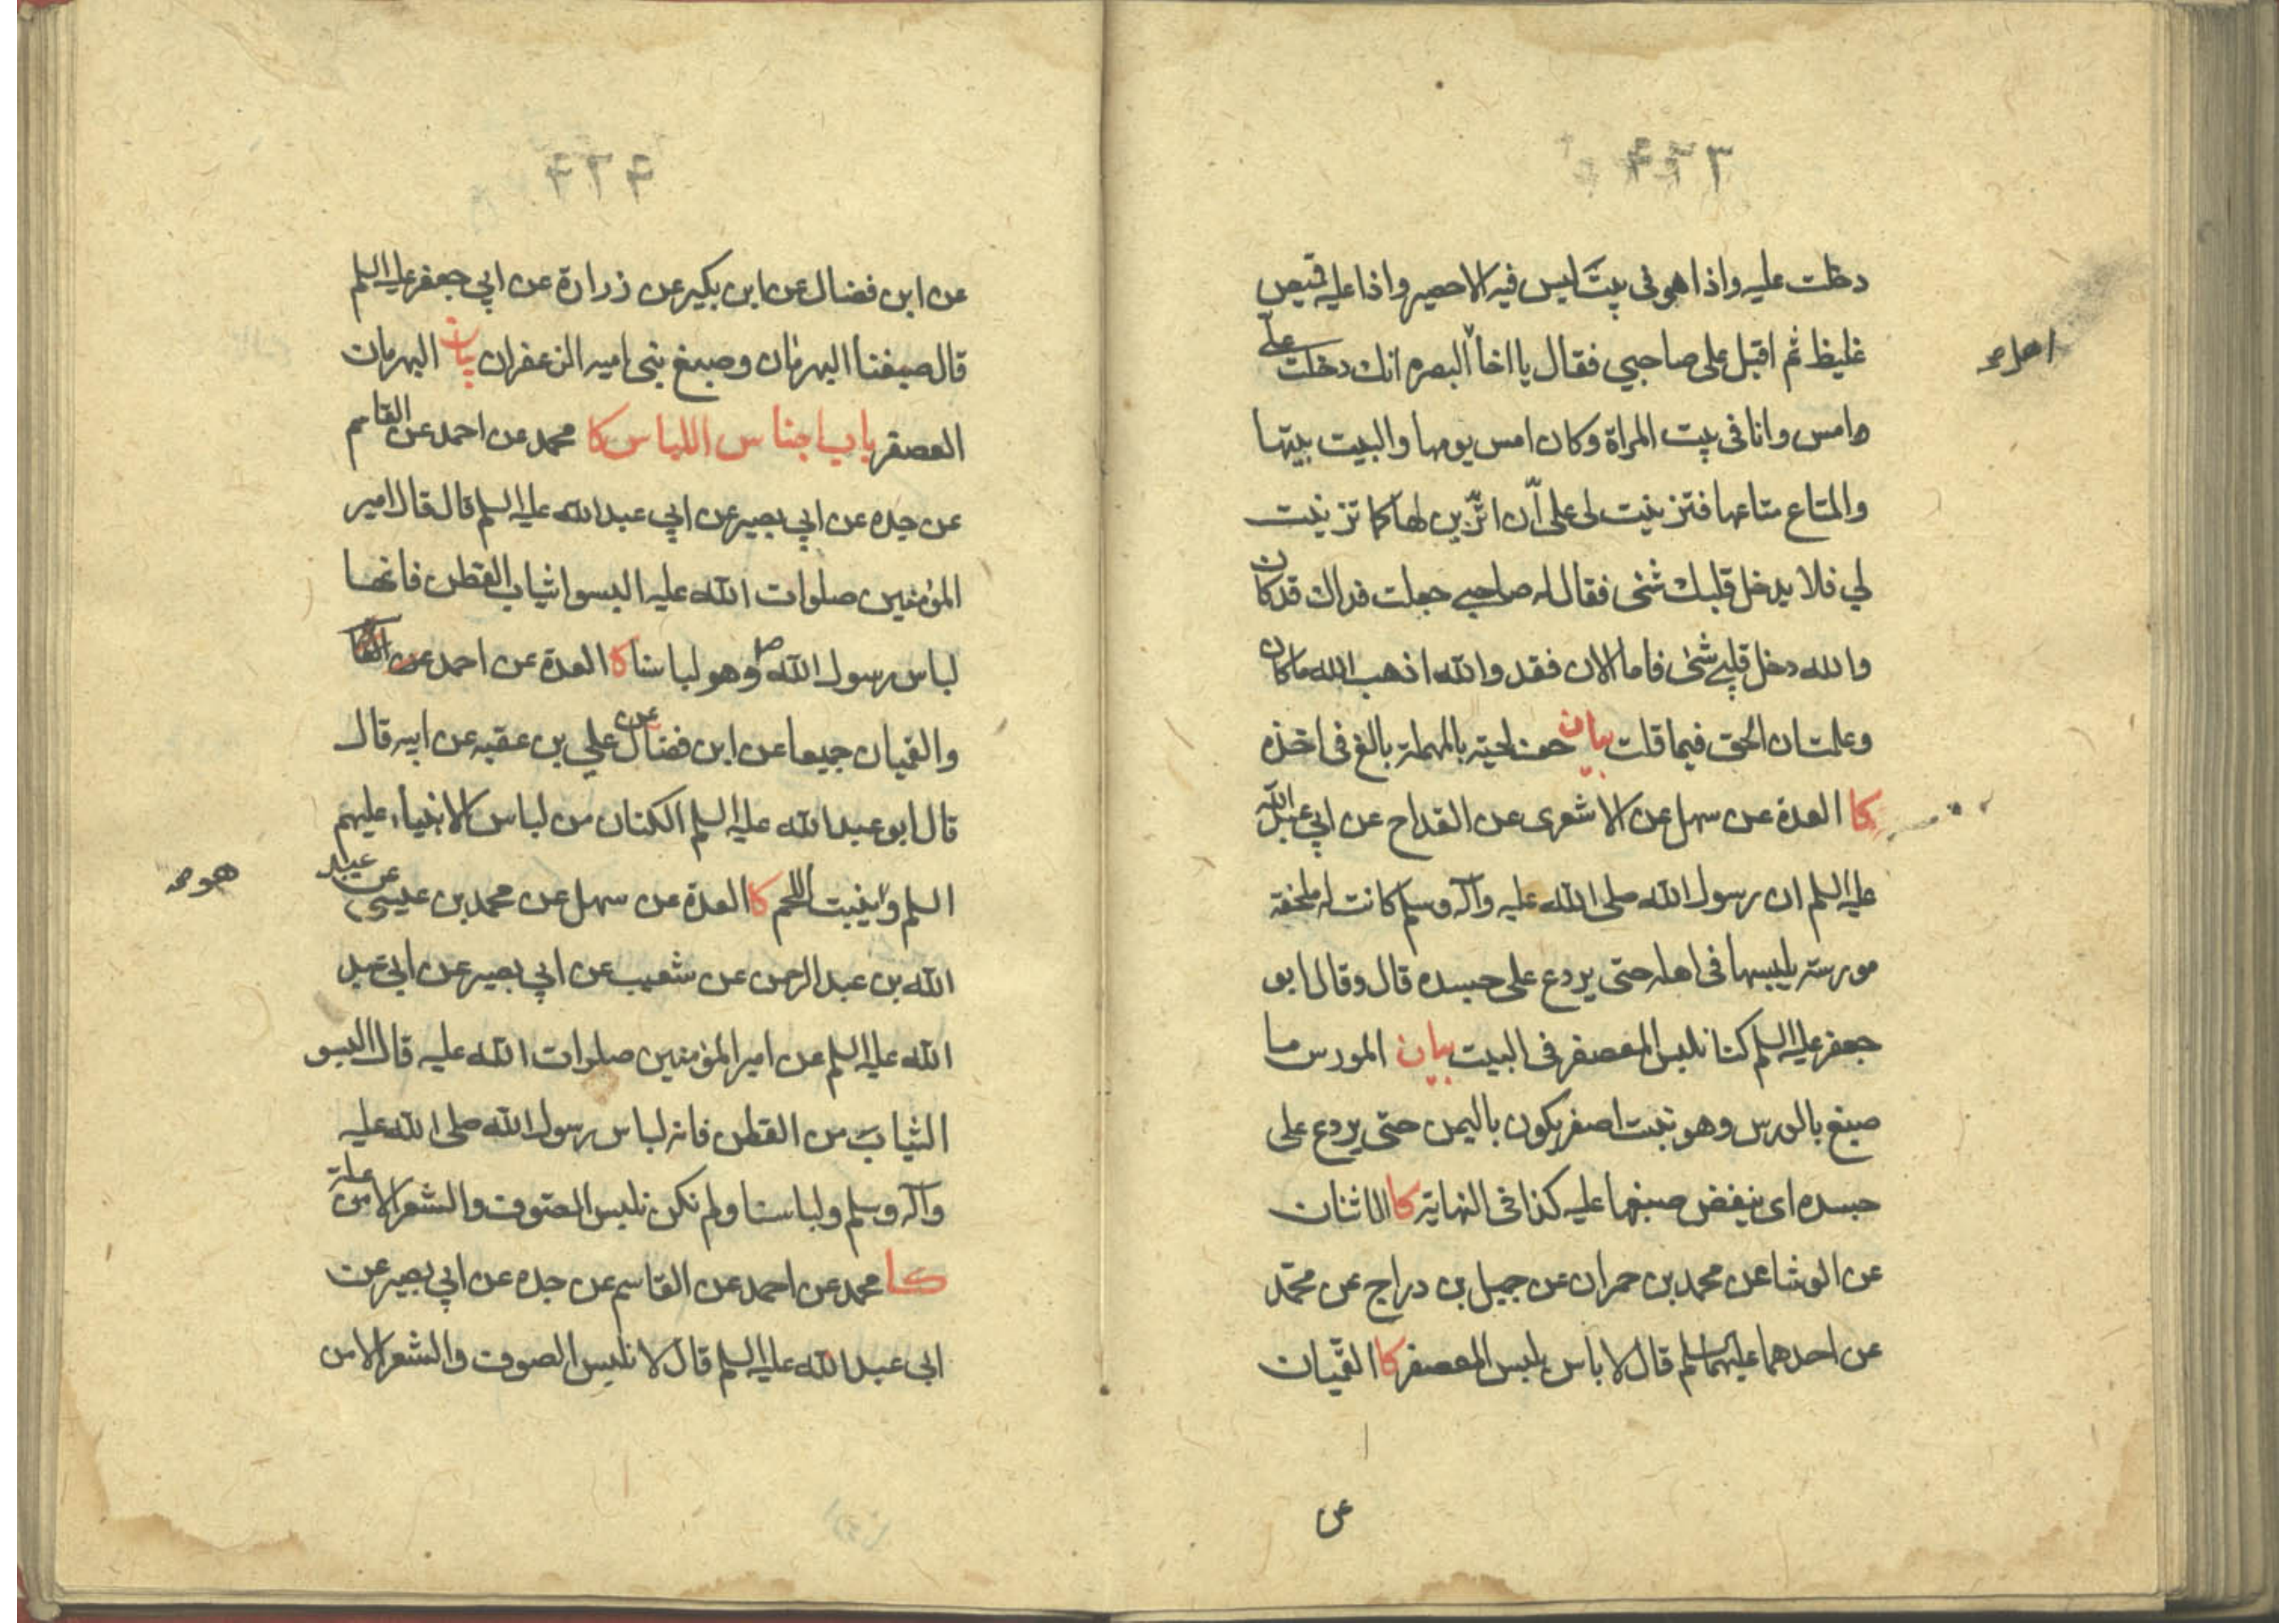 دخلت عليه واذا هو فى بيت ليس فيه الا حصير واذا عليه قميص
غليظ ثم اقبل على صاحبي فقال يا اخا البصره انك دخلت علىّ
امس وانا فى بيت المراة وكان امس يومها والبيت بيتها
والمتاع متاعها فتزينت لى على أن اتزين لها كما تزينت
لي فلا يدخل قلبك شئ فقال له صاحبي جعلت فداك قد كان
والله دخل قلبي شئ فاما الان فقد والله اذهب الله ما كان
وعلمت ان الحق فيما قلت بيان حف لحيته بالمهملة بالغ فى اخذه
كا العدة عن سهل عن الاشعرى عن القداح عن ابي عبد الله
عليه السلم ان رسول الله صلى الله عليه وآله وسلم كانت له ملحفة
مورسة يلبسها فى اهله حتى يردع على جسده قال وقال ابو
جعفر عليه السلم كنا نلبس المعصفر فى البيت بيان المورس ما
صبغ بالورس وهو نبت اصفر يكون باليمن حتى يردع على
جسده اى ينفض صبغها عليه كذا فى النهاية كا الاثنان
عن الوشا عن محمد بن حمران عن جميل بن دراج عن محمّد
عن احدهما عليهما السلم قال لا باس بلبس المعصفر كا القميان
عن
عن ابن فضال عن ابن بكير عن زرارة عن ابي جعفر عليه السلم
قال صبغنا البهرمان وصبغ بنى اميه الزعفران بيان البهرمان
العصفر باب اجناس اللباس كا محمد عن احمد عن القاسم
عن جده عن ابي بصير عن ابي عبد الله عليه السلم قال قال امير
المؤمنين صلوات الله عليه البسوا ثياب القطن فانها
لباس رسول الله ص وهو لباسنا كا العدة عن احمد عن
والقميان جميعا عن ابن فضال عن علي بن عقبه عن ابيه قال
قال ابو عبد الله عليه السلم الكتان من لباس الانبياء عليهم
السلم وينبت اللحم كا العدة عن سهل عن محمد بن عيسى عن عبيد
هو صح
الله بن عبد الرحمن عن شعيب عن ابي بصير عن ابي عبد
الله عليه السلم عن امير المؤمنين صلوات الله عليه قال البسو
الثياب من القطن فانه لباس رسول الله صلى الله عليه
وآله وسلم ولباسنا ولم نكن نلبس الصوف والشعر الا من علة
كا محمد عن احمد عن القاسم عن جده عن ابي بصير عن
ابي عبد الله عليه السلم قال لا نلبس الصوف والشعر الا من